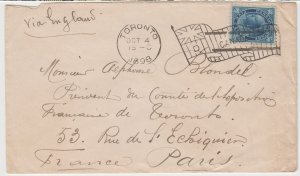 Via England
TORONTO
OCT 4
1898
CANADA
Monsieur Alphonse Blondel
Président du Comité de l'Exposition
Française de Toronto
53, Rue de l'Echiquier
France Paris.